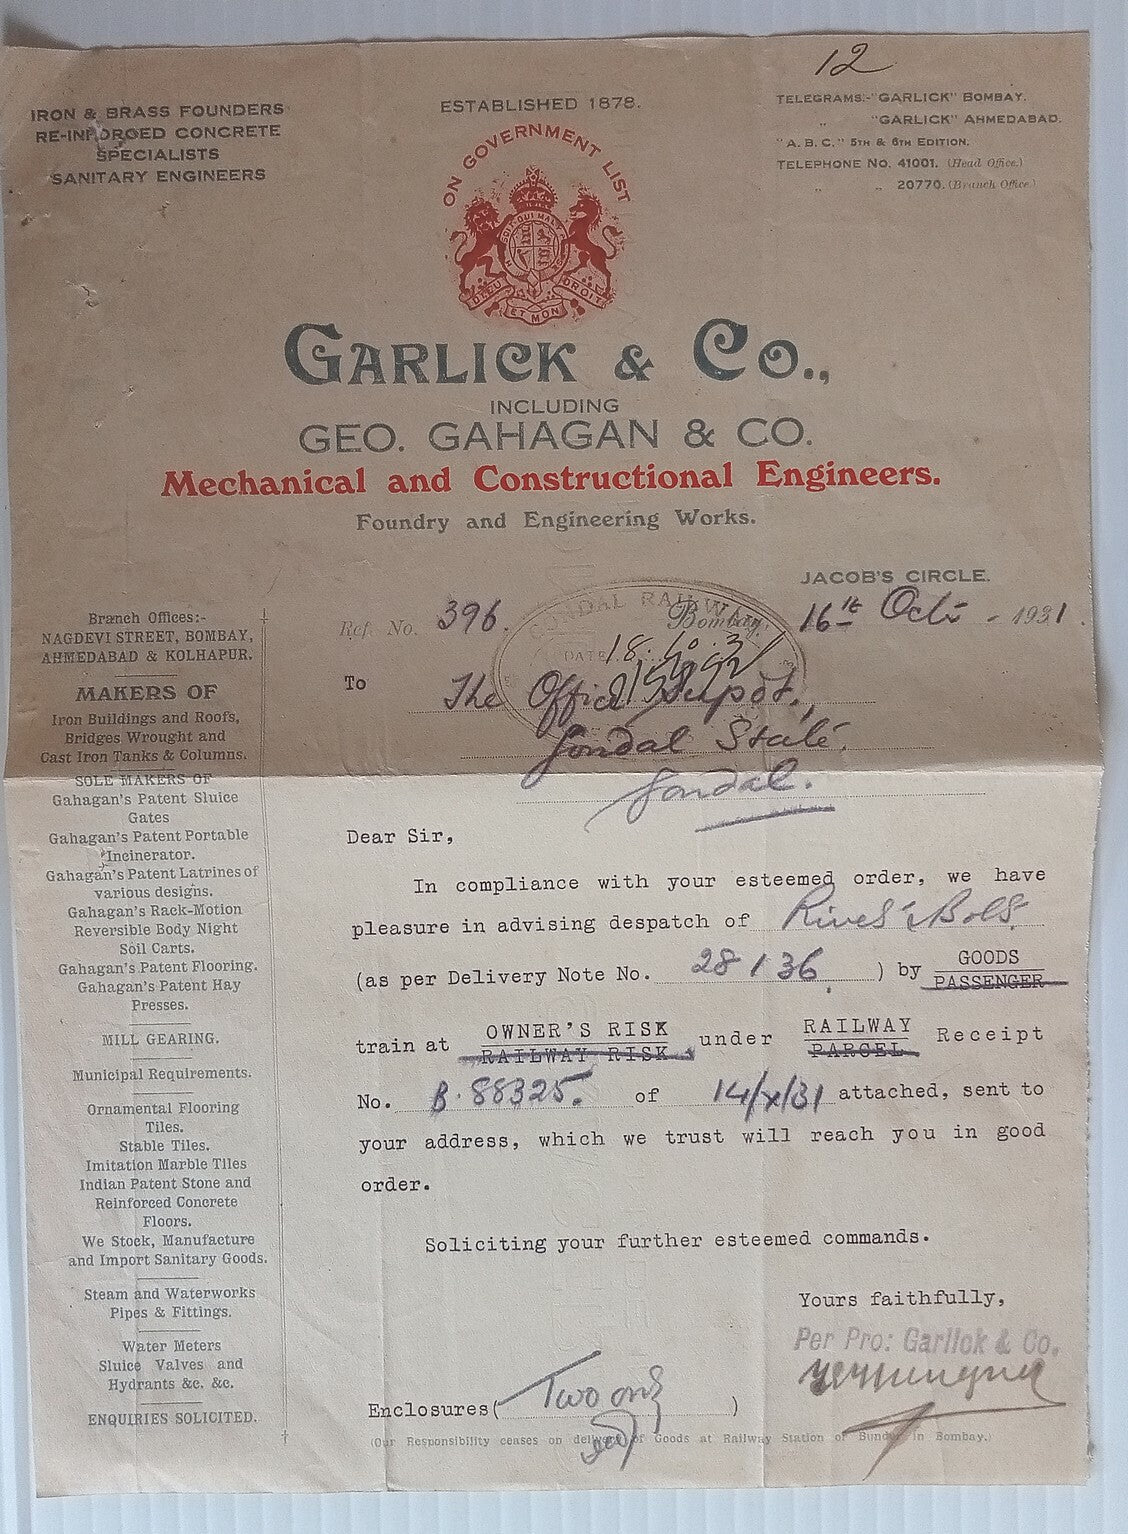 12
IRON & BRASS FOUNDERS
RE-INFORCED CONCRETE
SPECIALISTS
SANITARY ENGINEERS
ESTABLISHED 1878.
TELEGRAMS:-"GARLICK" BOMBAY.
„ "GARLICK" AHMEDABAD.
"A.B.C." 5TH & 6TH EDITION.
TELEPHONE NO. 41001. (Head Office.)
„ „ 20770. (Branch Office.)
ON GOVERNMENT LIST
DIEU
ET MON
DROIT
GARLICK & CO.,
INCLUDING
GEO. GAHAGAN & CO.
Mechanical and Constructional Engineers.
Foundry and Engineering Works.
JACOB'S CIRCLE.
Ref. No. 396.
Bombay, 16th Oct. - 1931.
GONDAL RAILWAY
DATE 18.10.31
To
The Office Supdt.,
Gondal State.
Gondal.
Branch Offices:-
NAGDEVI STREET, BOMBAY,
AHMEDABAD & KOLHAPUR.
MAKERS OF
Iron Buildings and Roofs,
Bridges Wrought and
Cast Iron Tanks & Columns.
SOLE MAKERS OF
Gahagan's Patent Sluice
Gates
Gahagan's Patent Portable
Incinerator.
Gahagan's Patent Latrines of
various designs.
Gahagan's Rack-Motion
Reversible Body Night
Soil Carts.
Gahagan's Patent Flooring.
Gahagan's Patent Hay
Presses.
MILL GEARING.
Municipal Requirements.
Ornamental Flooring
Tiles.
Stable Tiles.
Imitation Marble Tiles
Indian Patent Stone and
Reinforced Concrete
Floors.
We Stock, Manufacture
and Import Sanitary Goods.
Steam and Waterworks
Pipes & Fittings.
Water Meters
Sluice Valves and
Hydrants &c. &c.
ENQUIRIES SOLICITED.
Dear Sir,
In compliance with your esteemed order, we have
pleasure in advising despatch of Rivet & Bolt
(as per Delivery Note No. 28136. ) by GOODS
PASSENGER
train at OWNER'S RISK under RAILWAY Receipt
RAILWAY RISK PARCEL
No. B.88325. of 14/X/31 attached, sent to
your address, which we trust will reach you in good
order.
Soliciting your further esteemed commands.
Yours faithfully,
Per Pro: Garlick & Co.
Enclosures( Two only )
(Our Responsibility ceases on delivery of Goods at Railway Station or Bunder in Bombay.)